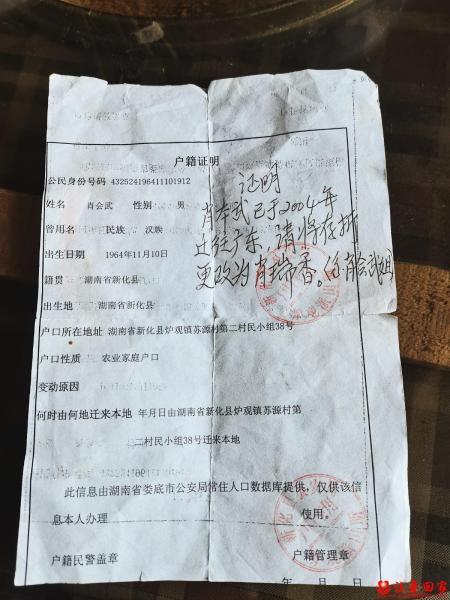 户籍证明
公民身份号码 432524196411101912
姓名 肖会武 性别 男
曾用名 民族 汉族
出生日期 1964年11月10日
籍贯 湖南省新化县
出生地 湖南省新化县
户口所在地址 湖南省新化县炉观镇苏源村第二村民小组38号
户口性质 农业家庭户口
变动原因
何时由何地迁来本地 年月日由湖南省新化县炉观镇苏源村第
二村民小组38号迁来本地
此信息由湖南省娄底市公安局常住人口数据库提供,仅供该信
息本人办理 使用。
户籍民警盖章 户籍管理章
年 月 日
证明
肖会武已于2004年
迁经广东,请将存折
更改为肖瑞香。
让爱回家